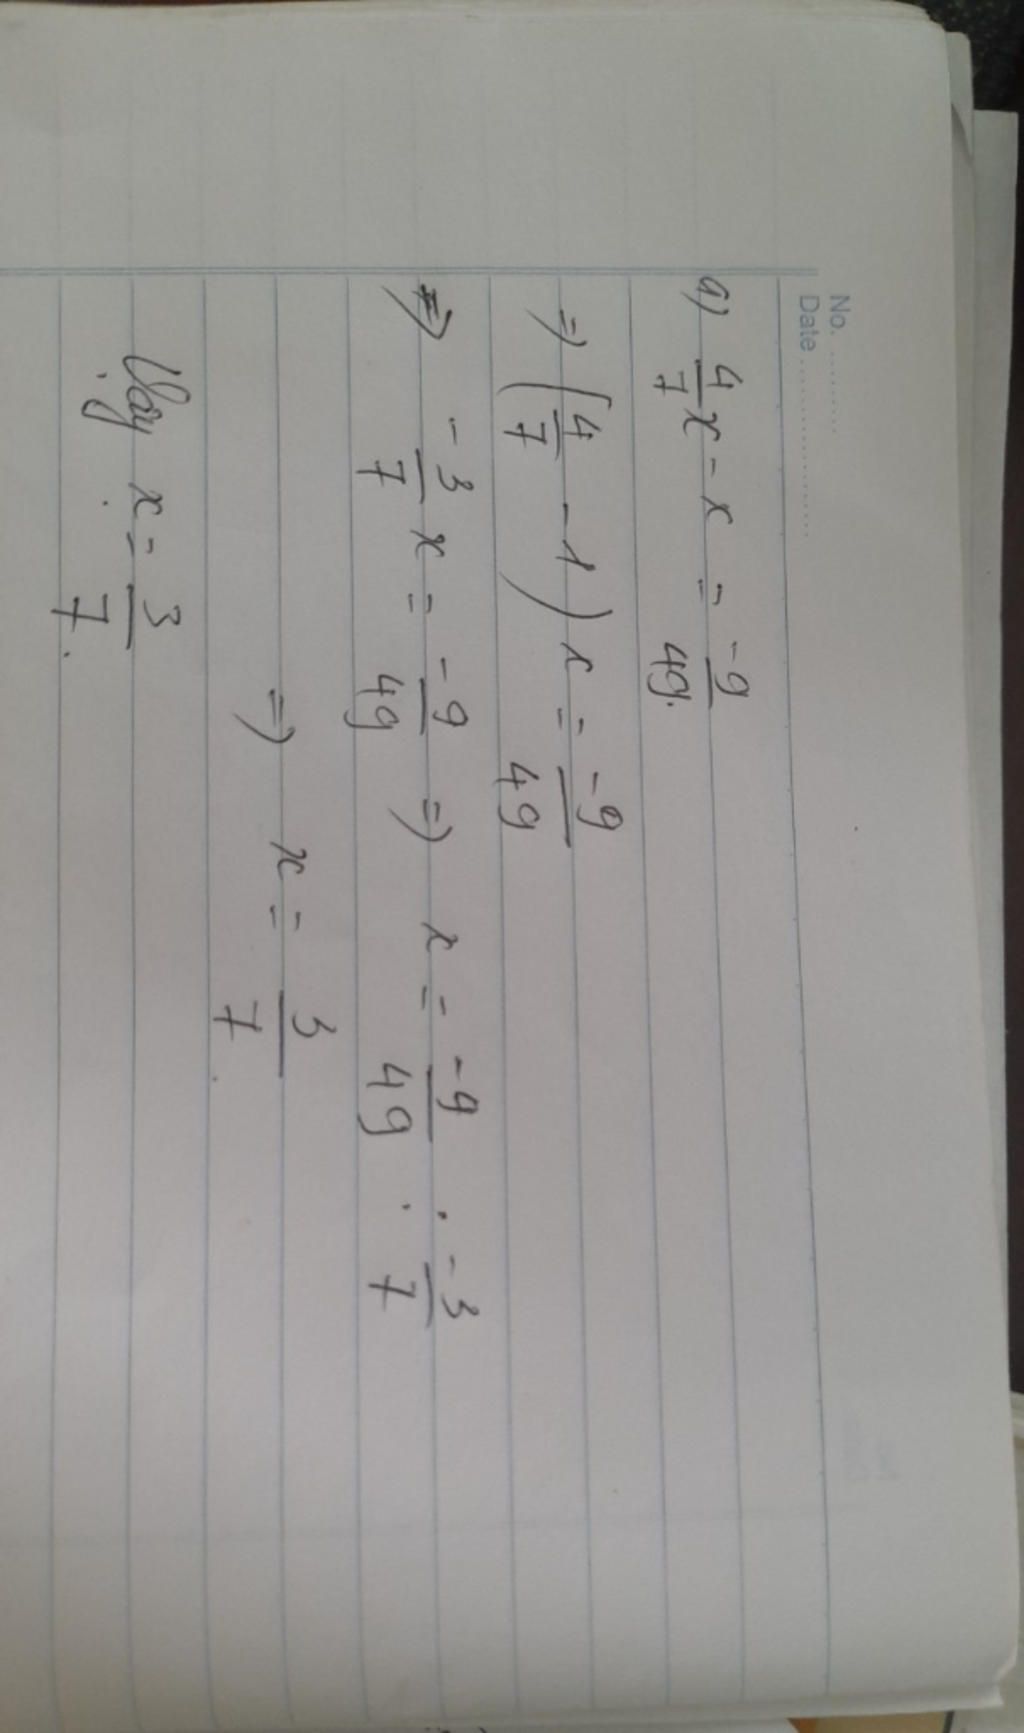 No. ..........
Date ......................
a) 4/7 x - x = -9/49.
=) (4/7 - 1) x = -9/49
=) -3/7 x = -9/49 =) x = -9/49 : -3/7
=) x = 3/7.
Vậy x = 3/7.